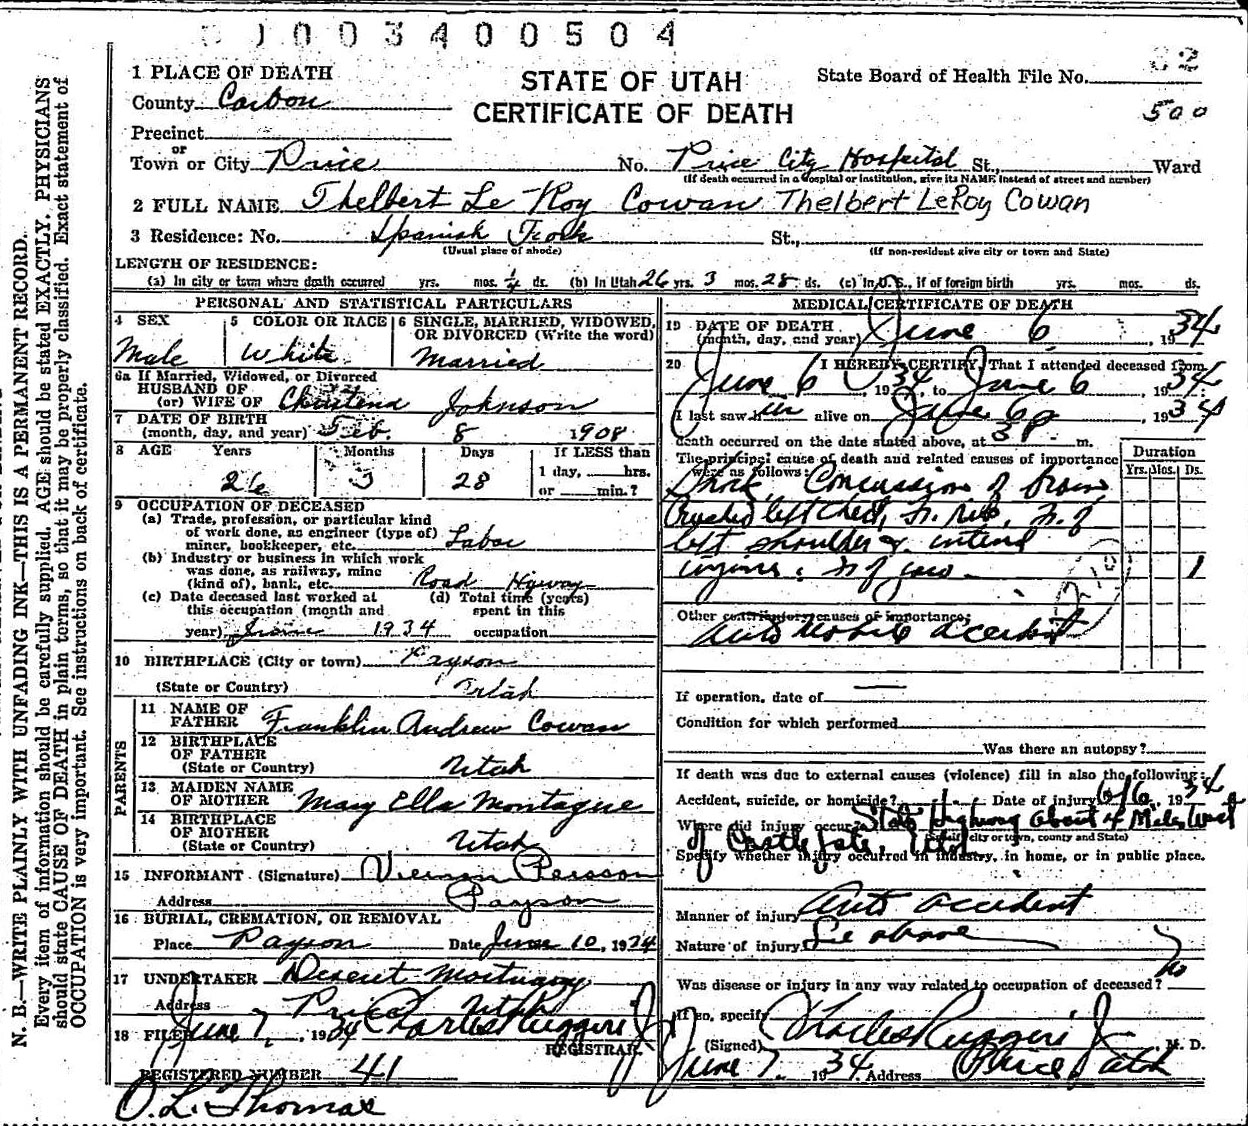 0003400504
1 PLACE OF DEATH
STATE OF UTAH
State Board of Health File No.
82
County Carbon
CERTIFICATE OF DEATH
500
Precinct
or
Town or City Price No. Price City Hospital St., Ward
(If death occurred in a hospital or institution, give its NAME instead of street and number)
2 FULL NAME Thelbert Le Roy Cowan Thelbert LeRoy Cowan
3 Residence: No. Spanish Fork St.,
(Usual place of abode) (If non-resident give city or town and State)
LENGTH OF RESIDENCE:
(a) In city or town where death occurred yrs. mos. ¼ ds. (b) In Utah 26 yrs. 3 mos. 28 ds. (c) In U.S. if of foreign birth yrs. mos. ds.
PERSONAL AND STATISTICAL PARTICULARS
4 SEX Male
5 COLOR OR RACE White
6 SINGLE, MARRIED, WIDOWED, OR DIVORCED (Write the word) Married
6a If Married, Widowed, or Divorced
HUSBAND OF
(or) WIFE OF Christena Johnson
7 DATE OF BIRTH
(month, day, and year) Feb. 8 1908
8 AGE Years Months Days If LESS than
1 day, hrs.
26 3 28 or min.?
9 OCCUPATION OF DECEASED
(a) Trade, profession, or particular kind
of work done, as engineer (type of)
miner, bookkeeper, etc. Labor
(b) Industry or business in which work
was done, as railway, mine
(kind of), bank, etc. Road Hyway
(c) Date deceased last worked at
this occupation (month and
year) June 1934
(d) Total time (years)
spent in this
occupation
10 BIRTHPLACE (City or town) Payson
(State or Country) Utah
PARENTS
11 NAME OF
FATHER Franklin Andrew Cowan
12 BIRTHPLACE
OF FATHER
(State or Country) Utah
13 MAIDEN NAME
OF MOTHER Mary Ella Montague
14 BIRTHPLACE
OF MOTHER
(State or Country) Utah
15 INFORMANT (Signature) Vernon Persson
Address Payson
16 BURIAL, CREMATION, OR REMOVAL
Place Payson Date June 10, 1934
17 UNDERTAKER Deseret Mortuary
Address Price Utah
18 FILED June 7, 1934 Charles Ruggeri Jr
REGISTRAR.
REGISTERED NUMBER 41
O. L. Thomas
MEDICAL CERTIFICATE OF DEATH
19 DATE OF DEATH
(month, day, and year) June 6, 1934
20 I HEREBY CERTIFY, That I attended deceased from
June 6 1934, to June 6, 1934
I last saw him alive on June 6, 1934
death occurred on the date stated above, at 3 P. m.
The principal cause of death and related causes of importance
were as follows:
Duration
Yrs. Mos. Ds.
Shock, Concussion of brain,
Crushed left chest, Fr. ribs, Fr. of
left shoulder & internal
injuries: Fr of jaw 1
210
Other contributory causes of importance:
Automobile accident
If operation, date of —
Condition for which performed
Was there an autopsy?
If death was due to external causes (violence) fill in also the following:
Accident, suicide, or homicide? Date of injury 6/6, 1934
Where did injury occur? State Highway about 4 Miles West
(Specify city or town, county and State)
of Castle Gate, Utah
Specify whether injury occurred in industry, in home, or in public place.
Manner of injury Auto accident
Nature of injury See above
Was disease or injury in any way related to occupation of deceased? No
If so, specify
(Signed) Charles Ruggeri Jr M. D.
June 7, 1934 Address Price Utah
N. B.—WRITE PLAINLY WITH UNFADING INK—THIS IS A PERMANENT RECORD.
Every item of information should be carefully supplied. AGE should be stated EXACTLY. PHYSICIANS
should state CAUSE OF DEATH in plain terms, so that it may be properly classified. Exact statement of
OCCUPATION is very important. See instructions on back of certificate.